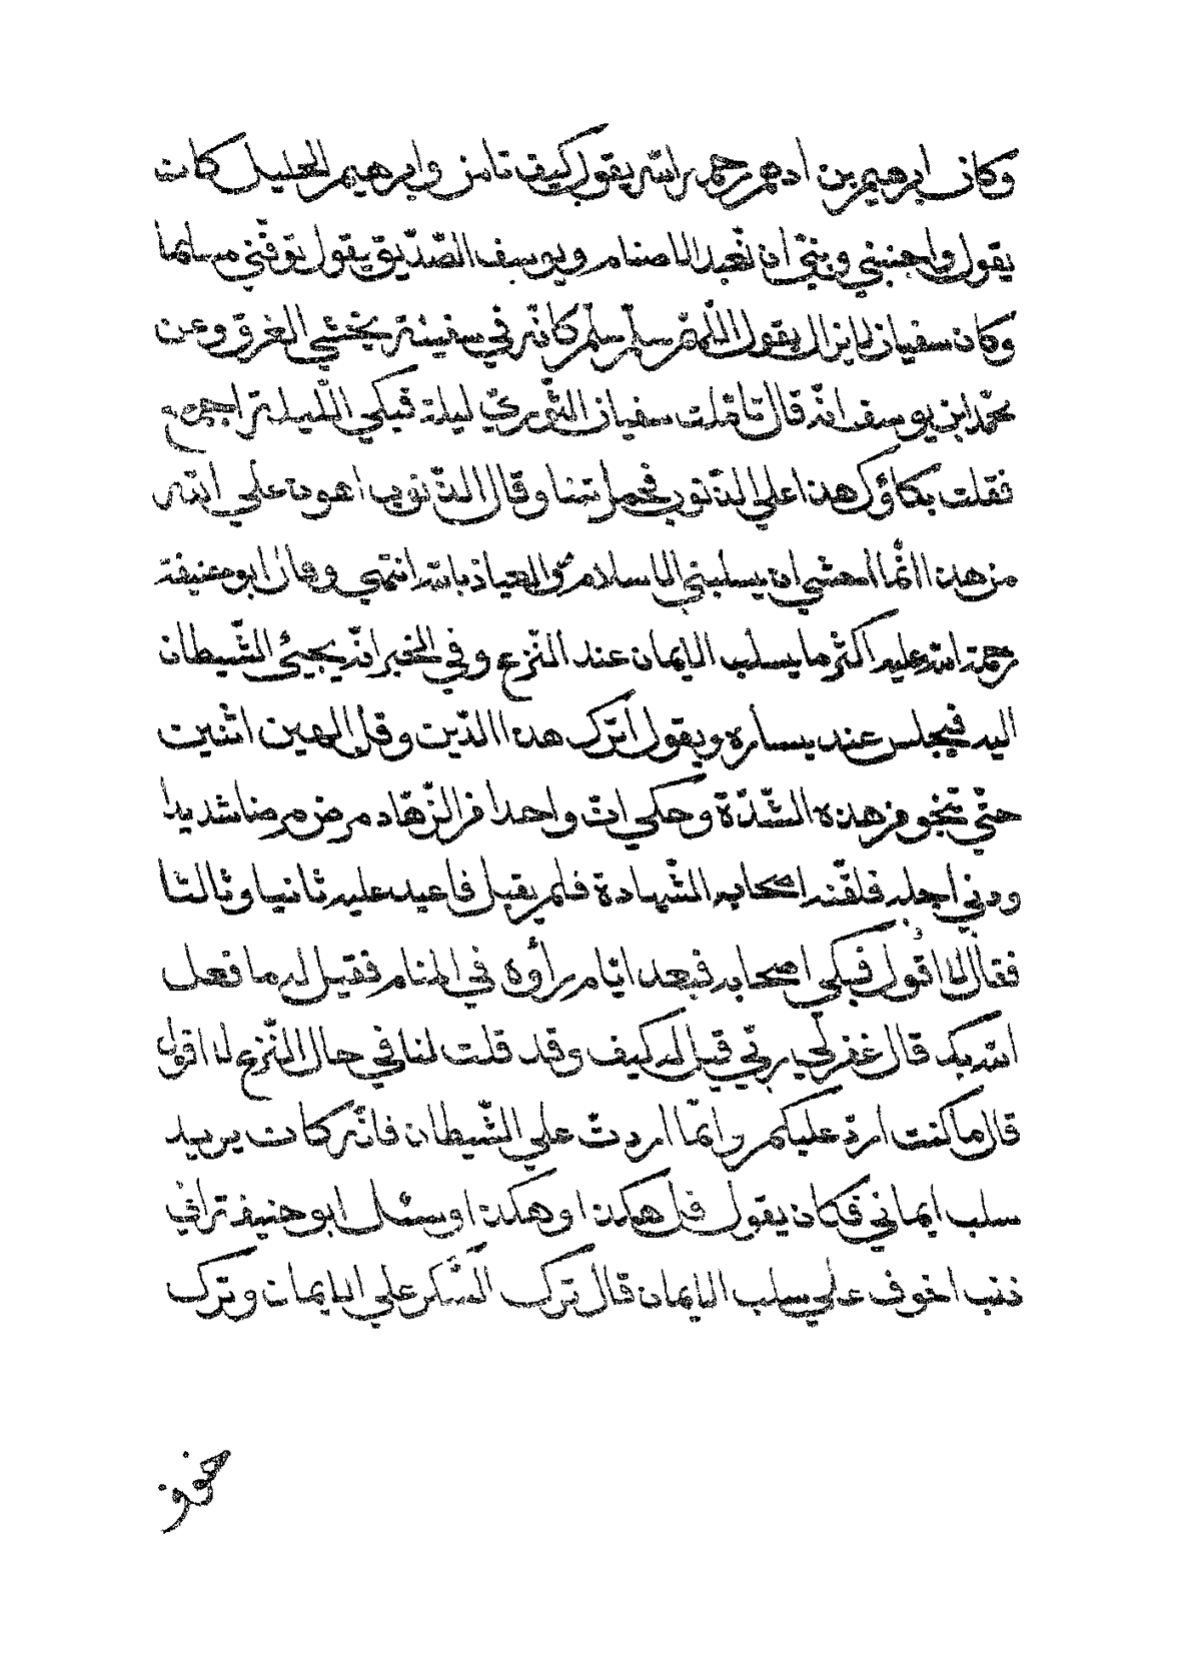 وكان ابرهيم بن ادهم رحمه الله يقول كيف تامن وابرهيم الخليل كان
يقول واجنبني وبنيّ ان نّعبد الاصنام ويوسف الصّدّيق يقول توفّني مسلما
وكان سفيان لايزال يقول اللّهمّ سلّم سلّم كانّه في سفينة يخشي الغرق وعن
محّمد ابن يوسف انّه قال تامّلت سفيان الثّوريّ ليلة فبكي اللّيلة اجمع
فقلت بكاؤك هذا علي الذّنوب فحمل تبنا وقال الذّنوب اهون علي الله
من هذا انّما اخشي ان يسلبني الاسلام والعياذ بالله انتهي وقال ابوحنيفة
رحمة الله عليه اكثر ما يسلب الايمان عند النّزع وفي الخبر انّه يجيئ الشّيطان
اليه فيجلس عند يساره ويقول اترك هذا الدّين وقل الهين اثنين
حتّي تنجو من هذه الشّدّة وحكي انّ واحدا من الزّهّاد مرض مرضا شديدا
ودني اجله فلقّنه اصحابه الشّهادة فلم يقبل فاعيد عليه ثانيا وثالثا
فقال لا اقول فبكي اصحابه فبعد ايّام رأوه في المنام فقيل له ما فعل
الله بك قال غفر لي ربّي قيل له كيف وقد قلت لنا في حال النّزع لا اقول
قال ما كنت اردّ عليكم وانّما اردتّ علي الشّيطان فانّه كان يريد
سلب ايماني فكان يقول قل هكذا وهكذا وسئل ابو حنيفة اي
ذنب اخوف علي سلب الايمان قال ترك الشّكر علي الايمان وترك
خوف